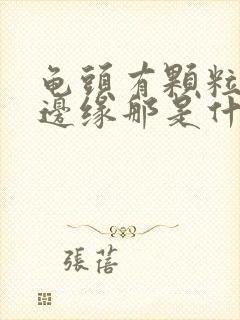 龟頭有顆粒
邊缘那是什
張蓓